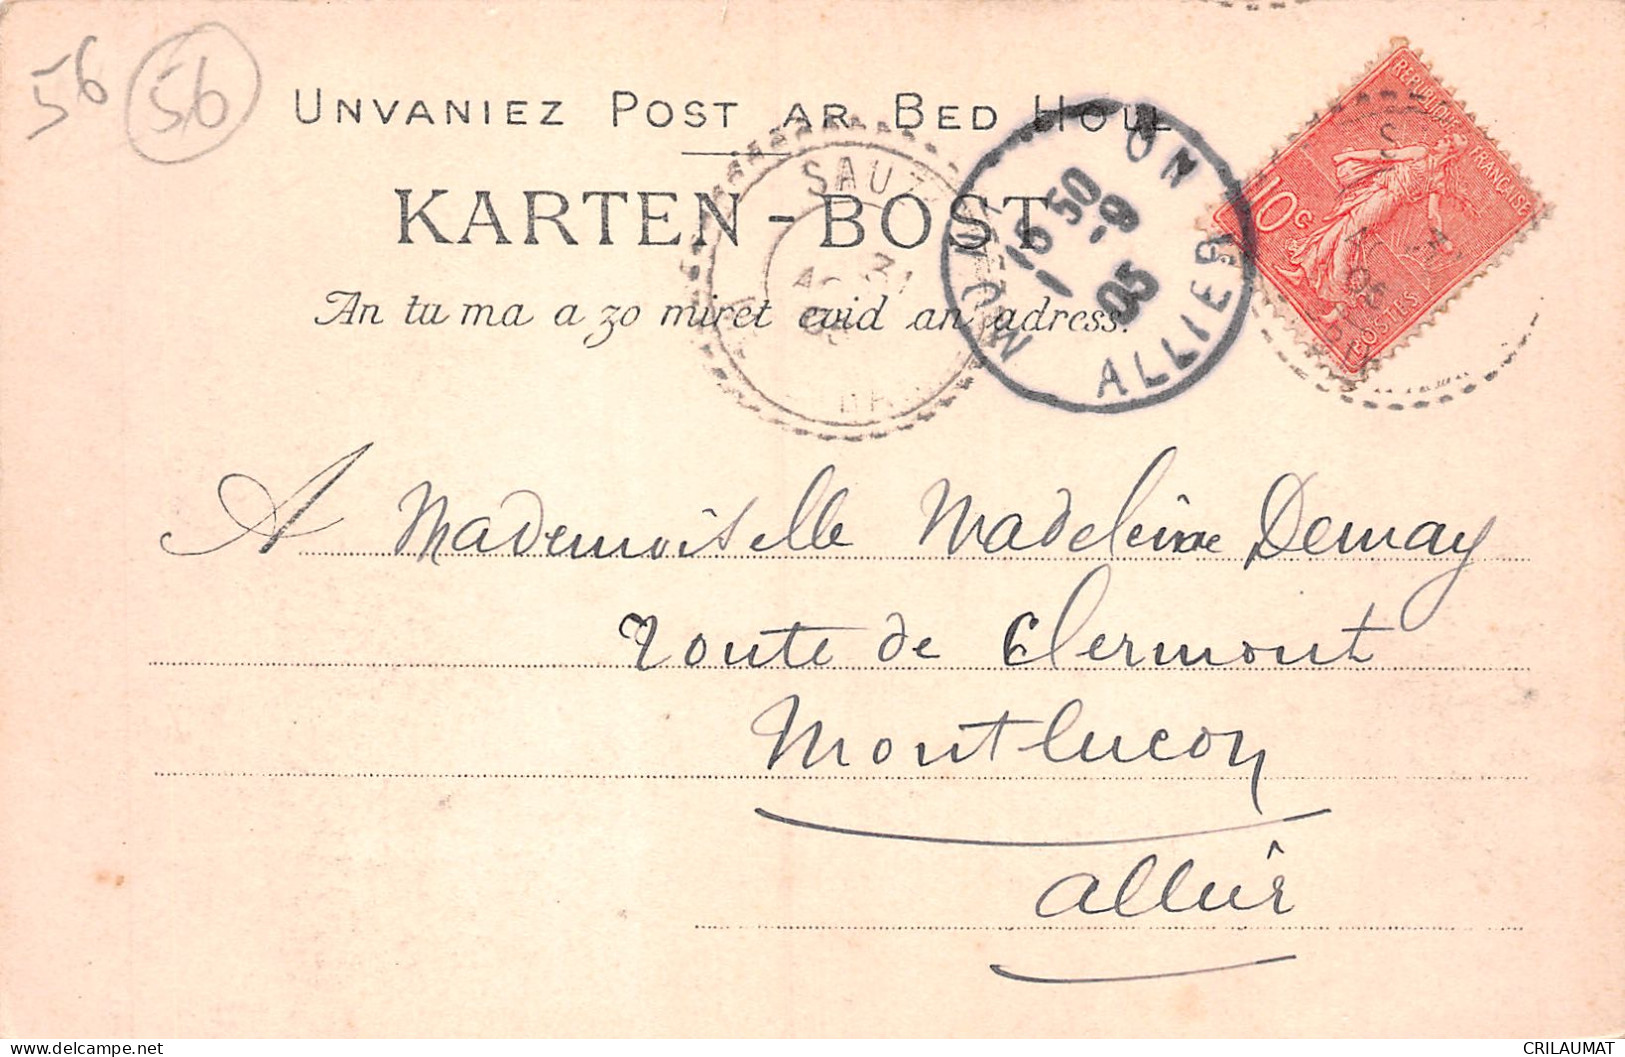 56 56
UNVANIEZ POST AR BED HOLL
KARTEN-BOST
An tu ma a zo miret evid an adress.
SAUZ
31
15 50
1 -9
05
ALLIER
REPUBLIQUE FRANÇAISE
10 c
POSTES
A Mademoiselle Madeleine Demay
Route de Clermont
Montluçon
Allier
CRILAUMAT